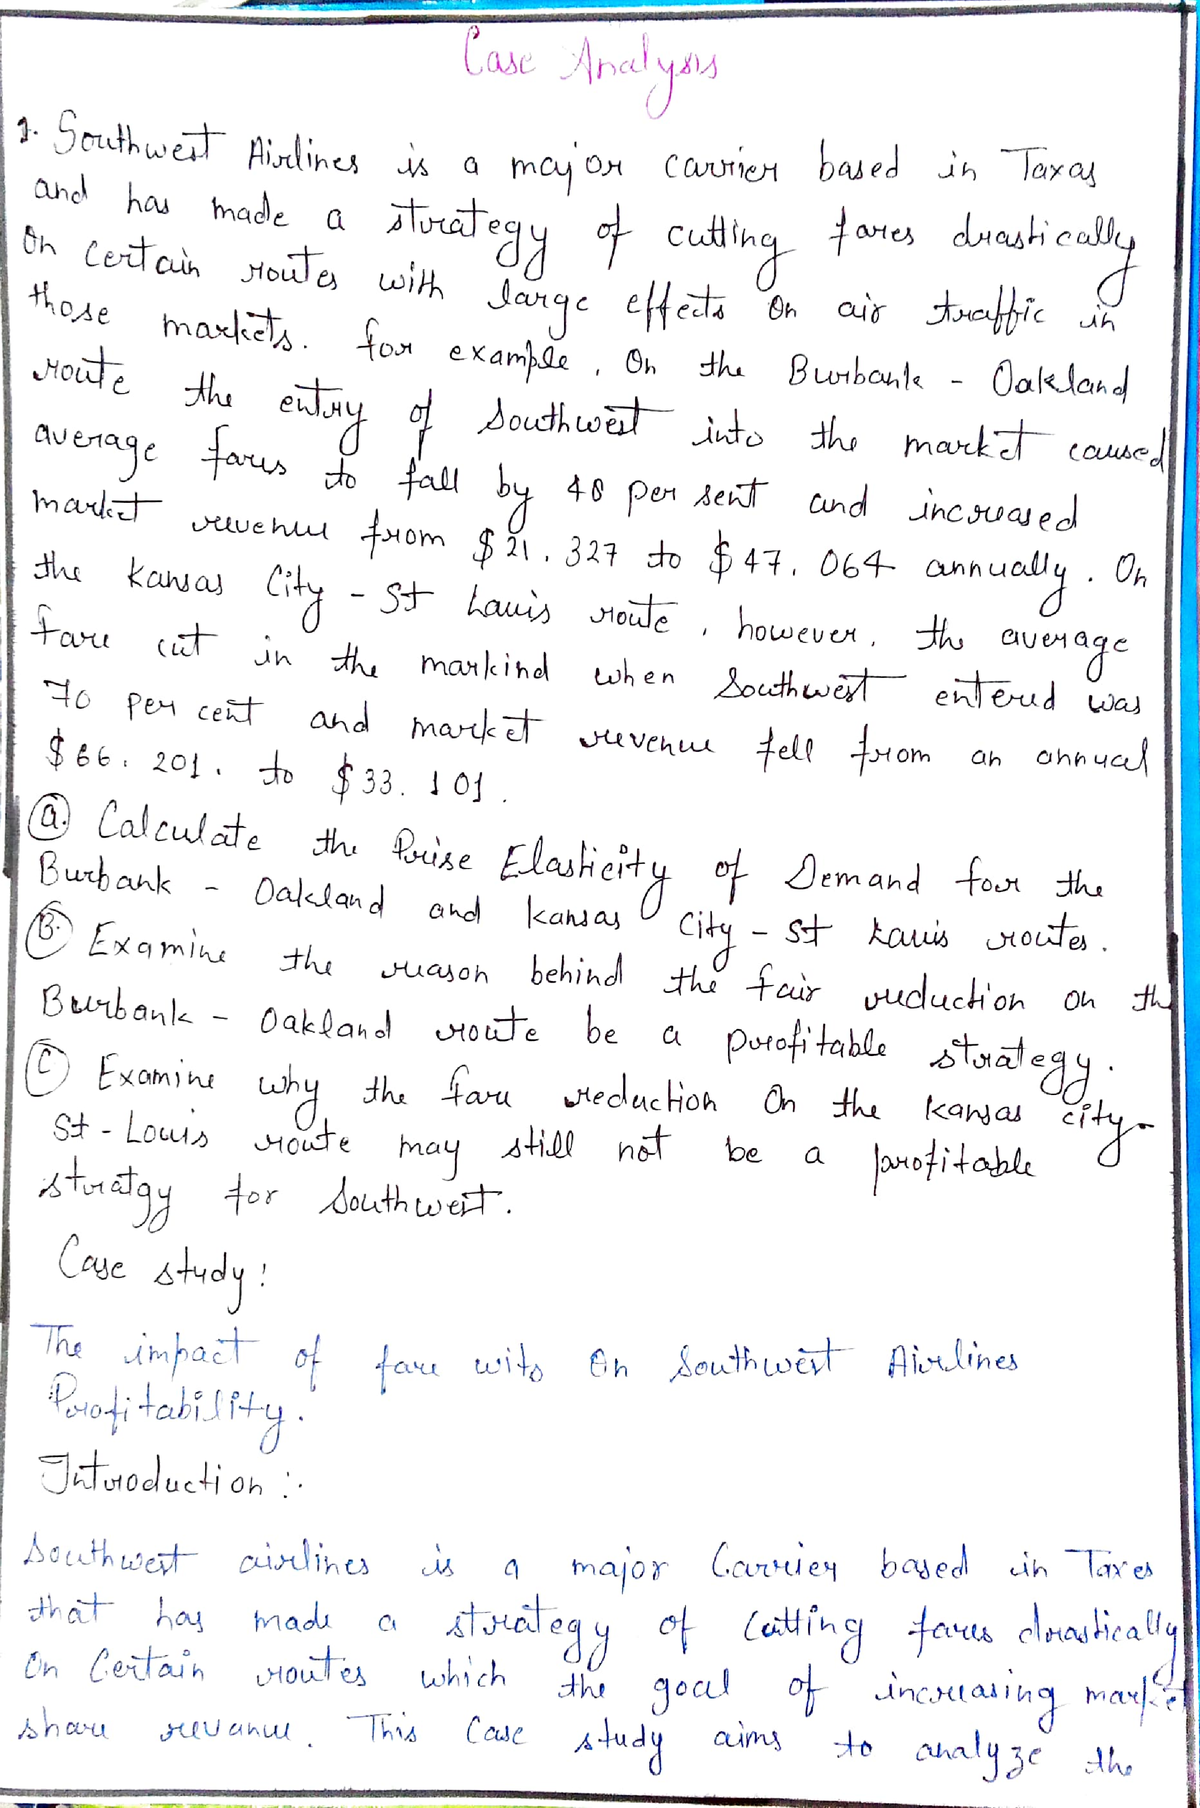 Case Analysis
1. Southwest Airlines is a major carrier based in Taxas
and has made a strategy of cutting fares drastically
On certain routes with large effects On air traffic in
those markets. for example, On the Burbank - Oakland
route the entry of Southwest into the market caused
average fares to fall by 48 per sent and increased
market revenue from $21.327 to $47.064 annually. On
the Kansas City - St Lauis route, however, the average
fare cut in the markind when Southwest entered was
70 per cent and market revenue fell from an annual
$66.201. to $33.101.
(a.) Calculate the Prise Elasticity of Demand foor the
Burbank - Oakland and kansas City - St Lauis routes.
(B.) Examine the reason behind the fair reduction on the
Burbank - Oakland route be a profitable strategy.
(C) Examine why the fare reduction On the kansas city-
St-Louis route may still not be a profitable
stratgy for Southwest.
Case study!
The impact of fare wits On Southwest Airlines
Profitability.
Introduction :-
Southwest airlines is a major Carrier based in Taxes
that has made a strategy of Cutting fares drastically
On Certain routes which the goal of increasing market
share revanue. This Case study aims to analyze the